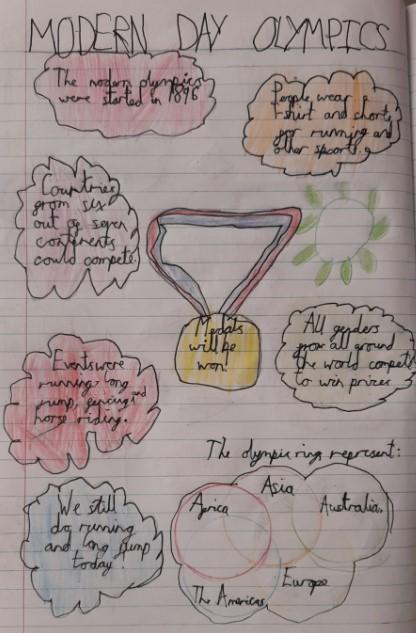 MODERN DAY OLYMPICS
The modern olympics
were started in 1896
People wear a
t-shirt and shorts
for running and
other sports.
Countries
from six
out of seven
continents
could compete.
Medals
will be
won!
All genders
from all around
the world compete
to win prizes.
Events were
running, long
jump, fencing and
horse riding.
The olympic ring represent:
We still
do running
and long jump
today!
Africa
Asia
Australia.
The Americas
Europe